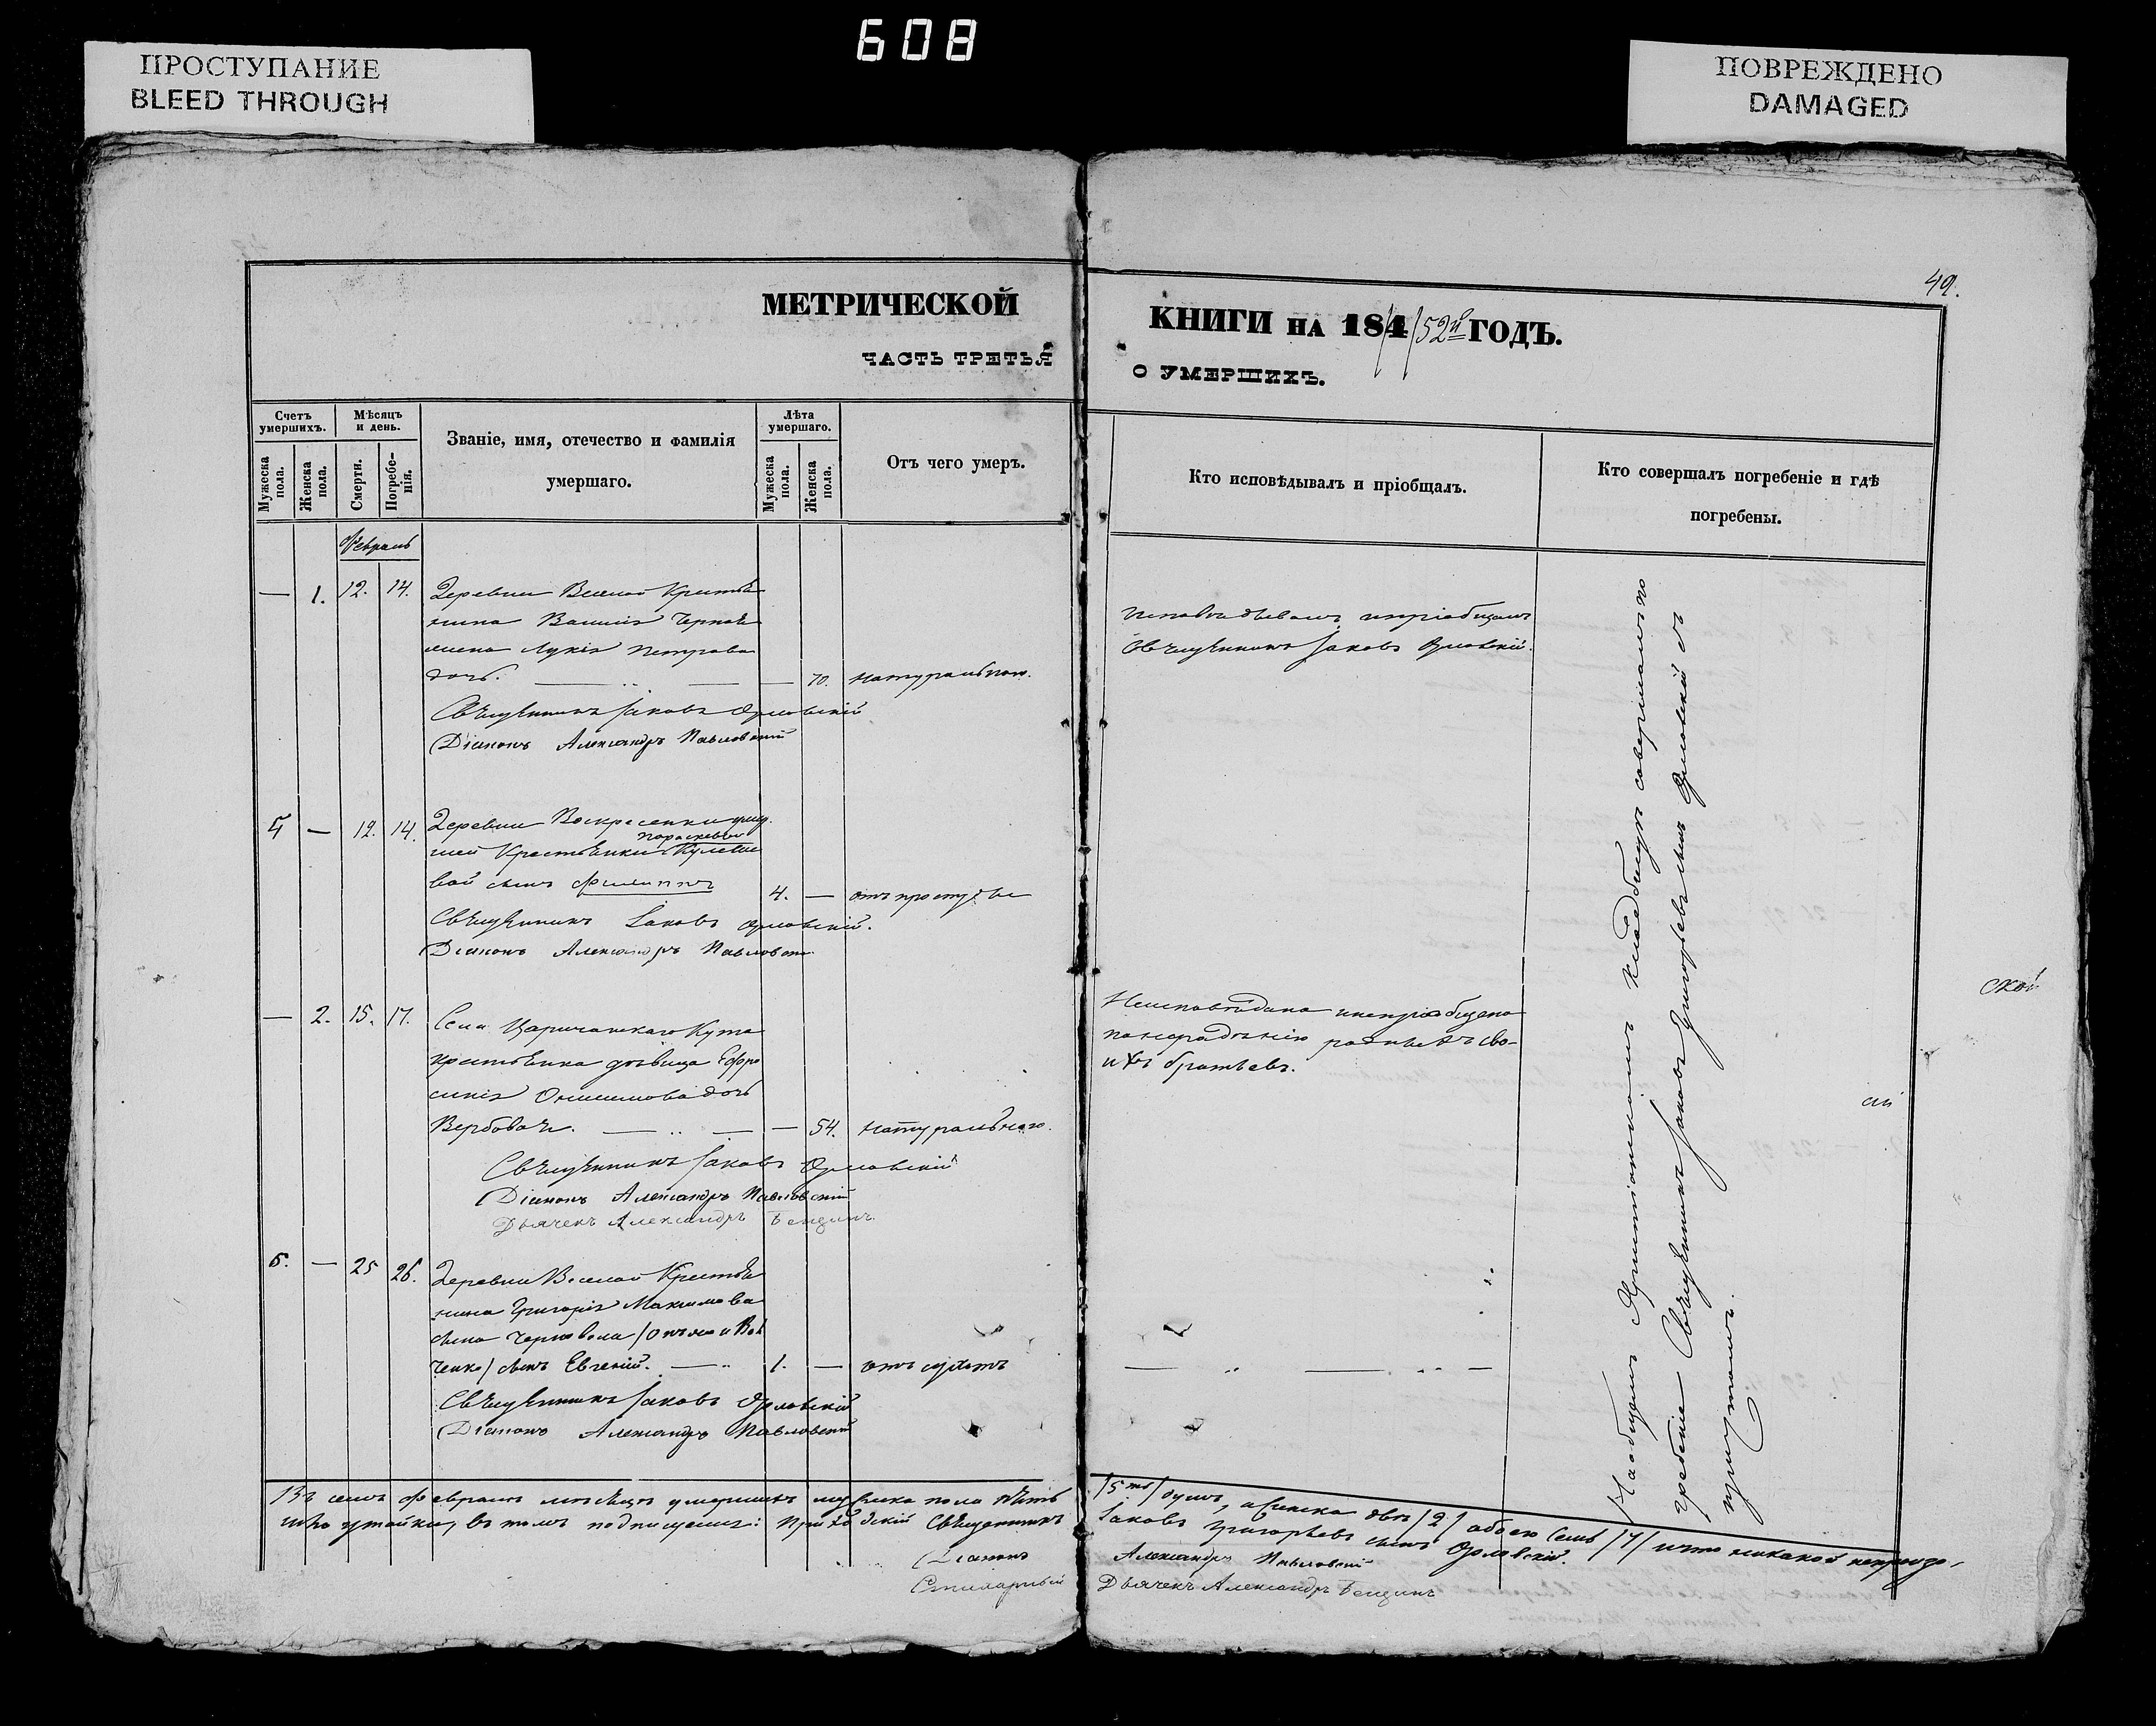 608
ПРОСТУПАНИЕ
BLEED THROUGH
ПОВРЕЖДЕНО
DAMAGED
49.
МЕТРИЧЕСКОЙ
КНИГИ НА 184/52й ГОДЪ.
ЧАСТЬ ТРЕТЬЯ
О УМЕРШИХЪ.
Счетъ умершихъ.
Мѣсяцъ и день.
Званіе, имя, отечество и фамилія умершаго.
Лѣта умершаго.
Отъ чего умеръ.
Кто исповѣдывалъ и пріобщалъ.
Кто совершалъ погребеніе и гдѣ погребены.
Мужеска пола.
Женска пола.
Смерти.
Погребенія.
Мужеска пола.
Женска пола.
Февраль
— 1. 12. 14. Деревни Веселой Крестья
нина Василія
жена Лукія Петрова
дочь. — 70. натурально.
Священникъ Іаковъ Орловскій
Діаконъ Александръ Павловскій
Исповѣдывалъ и пріобщалъ
Священникъ Іаковъ Орловскій.
— 12. 14. Деревни Воскресенки
Параскевіи
Крестьянки
вой сынъ Филиппъ 4. — отъ простуды
Священникъ Іаковъ Орловскій.
Діаконъ Александръ Павловскій
— 2. 15. 17. Села Царичанскаго Кута
крестьянка дѣвица Ефро
синія Онисимова дочь
Вербовая. — 54. натурально.
Священникъ Іаковъ Орловскій
Діаконъ Александръ Павловскій
Дьячекъ Александръ Бенцинъ.
Неисповѣдана и непріобщена
по нерадѣнію сво-
ихъ братьевъ.
5. — 25 26. Деревни Веселой Крестья
нина Григорія Максимова
сына
ченко/ сынъ Евгеній. — 1. — отъ сухотъ
Священникъ Іаковъ Орловскій
Діаконъ Александръ Павловскій
На общемъ Христіанскомъ кладбищѣ совершалъ по
гребеніе Священникъ Іаковъ Григорьевъ сынъ Орловскій съ
причтомъ.
Въ семъ Февралѣ мѣсяцѣ умершихъ мужеска пола пять /5ть/ душъ, а женска двѣ /2/ обоего семь /7/ и что никакой непроизо-
шло утайки, въ томъ подписуемся: Приходскій Священникъ Іаковъ Григорьевъ сынъ Орловскій.
Діаконъ Александръ Павловскій
Стихарный Дьячекъ Александръ Бенцинъ
ской